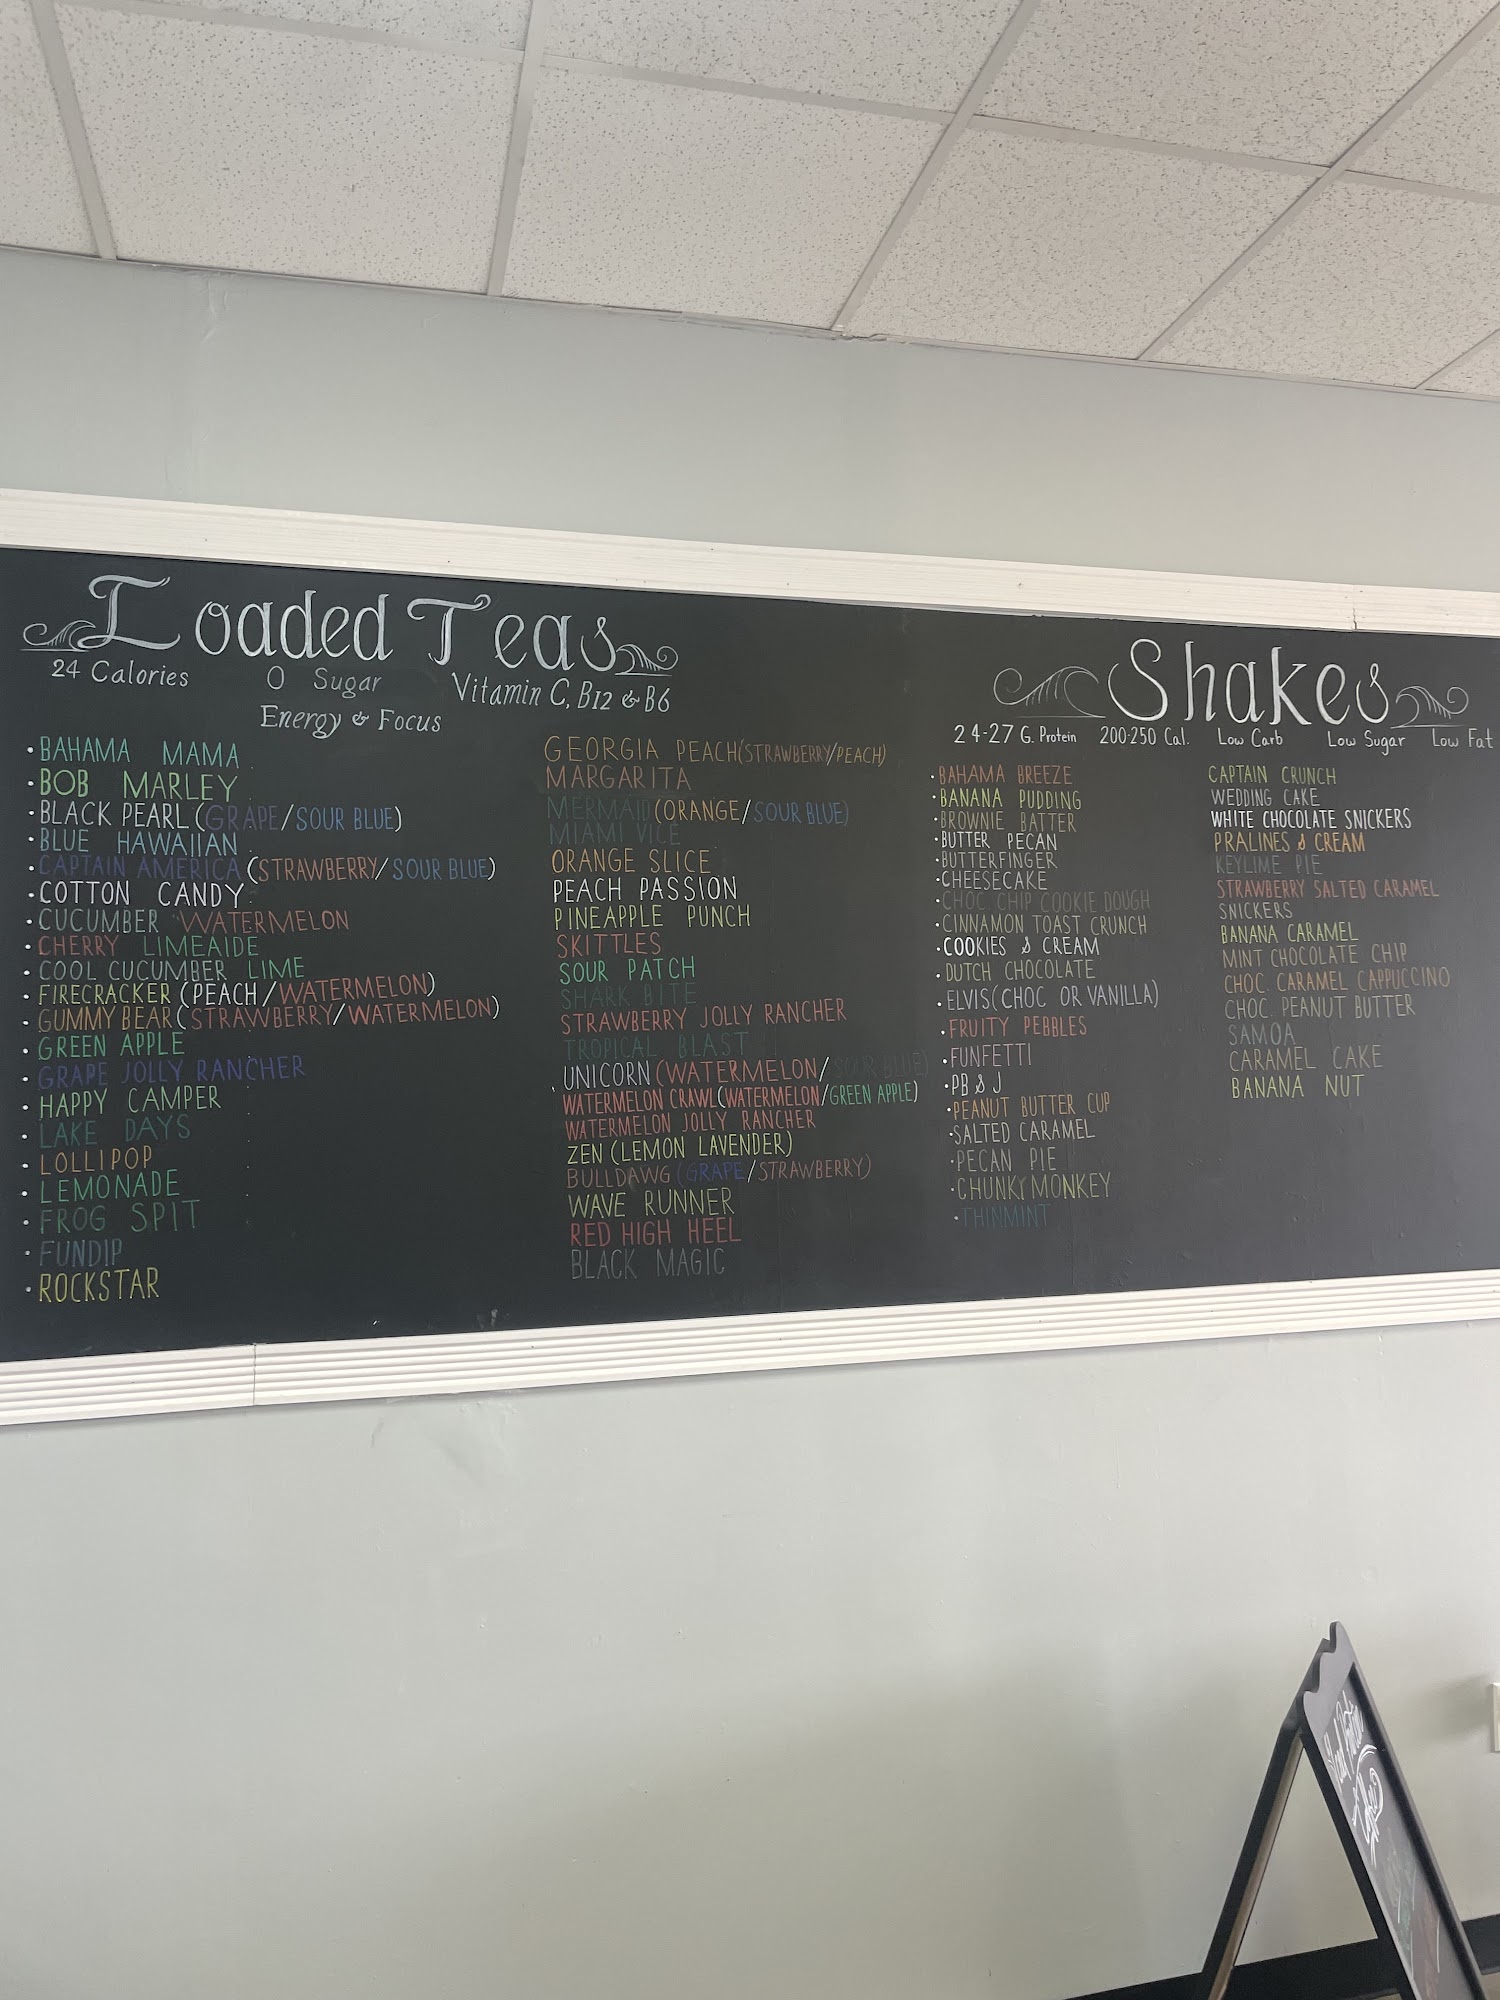 Loaded Teas
24 Calories 0 Sugar Vitamin C, B12 & B6
Energy & Focus
• BAHAMA MAMA
• BOB MARLEY
• BLACK PEARL (GRAPE/SOUR BLUE)
• BLUE HAWAIIAN
• CAPTAIN AMERICA (STRAWBERRY/SOUR BLUE)
• COTTON CANDY
• CUCUMBER WATERMELON
• CHERRY LIMEAIDE
• COOL CUCUMBER LIME
• FIRECRACKER (PEACH/WATERMELON)
• GUMMY BEAR (STRAWBERRY/WATERMELON)
• GREEN APPLE
• GRAPE JOLLY RANCHER
• HAPPY CAMPER
• LAKE DAYS
• LOLLIPOP
• LEMONADE
• FROG SPIT
• FUNDIP
• ROCKSTAR
GEORGIA PEACH (STRAWBERRY/PEACH)
MARGARITA
MERMAID (ORANGE/SOUR BLUE)
MIAMI VICE
ORANGE SLICE
PEACH PASSION
PINEAPPLE PUNCH
SKITTLES
SOUR PATCH
SHARK BITE
STRAWBERRY JOLLY RANCHER
TROPICAL BLAST
UNICORN (WATERMELON/SOUR BLUE)
WATERMELON CRAWL (WATERMELON/GREEN APPLE)
WATERMELON JOLLY RANCHER
ZEN (LEMON LAVENDER)
BULLDAWG (GRAPE/STRAWBERRY)
WAVE RUNNER
RED HIGH HEEL
BLACK MAGIC
Shakes
24-27 G. Protein 200-250 Cal. Low Carb Low Sugar Low Fat
• BAHAMA BREEZE
• BANANA PUDDING
• BROWNIE BATTER
• BUTTER PECAN
• BUTTERFINGER
• CHEESECAKE
• CHOC CHIP COOKIE DOUGH
• CINNAMON TOAST CRUNCH
• COOKIES & CREAM
• DUTCH CHOCOLATE
• ELVIS (CHOC OR VANILLA)
• FRUITY PEBBLES
• FUNFETTI
• PB & J
• PEANUT BUTTER CUP
• SALTED CARAMEL
• PECAN PIE
• CHUNKY MONKEY
• THINMINT
CAPTAIN CRUNCH
WEDDING CAKE
WHITE CHOCOLATE SNICKERS
PRALINES & CREAM
KEYLIME PIE
STRAWBERRY SALTED CARAMEL
SNICKERS
BANANA CARAMEL
MINT CHOCOLATE CHIP
CHOC. CARAMEL CAPPUCCINO
CHOC. PEANUT BUTTER
SAMOA
CARAMEL CAKE
BANANA NUT